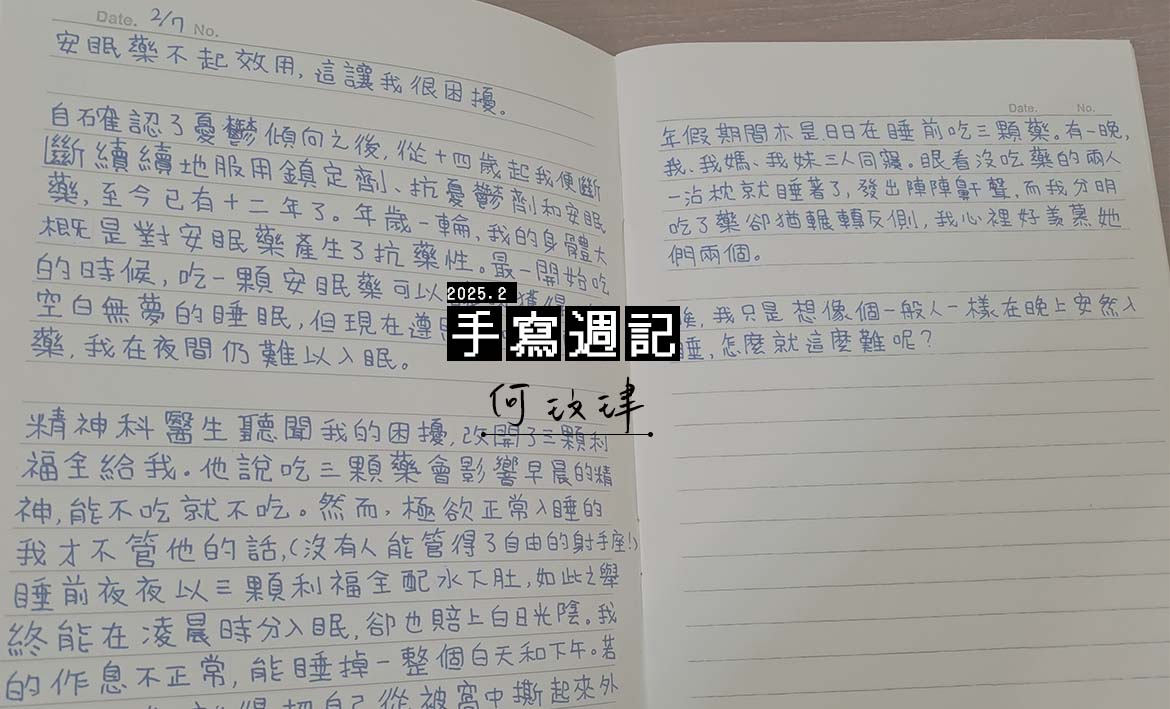 Date. 2/7 No.
安眠藥不起效用,這讓我很困擾。
自確認了憂鬱傾向之後,從十四歲起我便斷
斷續續地服用鎮定劑、抗憂鬱劑和安眠
藥,至今已有十二年了。年歲一輪,我的身體大
概是對安眠藥產生了抗藥性。最一開始吃
的時候,吃一顆安眠藥可以
空白無夢的睡眠,但現在遵
藥,我在夜間仍難以入眠。
精神科醫生聽聞我的困擾,改開了三顆利
福全給我。他說吃三顆藥會影響早晨的精
神,能不吃就不吃。然而,極欲正常入睡的
我才不管他的話,(沒有人能管得了自由的射手座!)
睡前夜夜以三顆利福全配水下肚,如此之舉
終能在凌晨時分入眠,卻也賠上白日光陰。我
的作息不正常,能睡掉一整個白天和下午。若
把自己從被窩中撕起來外
Date. No.
年假期間亦是日日在睡前吃三顆藥。有一晚,
我、我媽、我妹三人同寢。眼看沒吃藥的兩人
一沾枕就睡著了,發出陣陣鼾聲,而我分明
吃了藥卻猶輾轉反側,我心裡好羨慕她
們兩個。
唉,我只是想像個一般人一樣在晚上安然入
睡,怎麼就這麼難呢?
2025.2
手寫週記
何玟珒